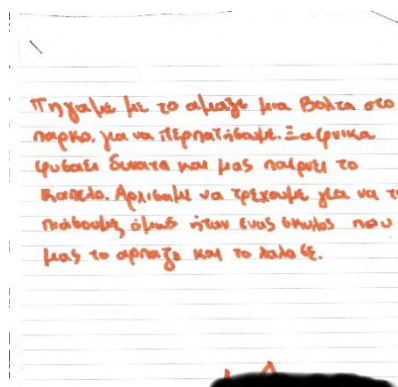 Πηγαμε με το αμαξι μια βολτα στο
παρκο, για να περπατήσουμε. Ξαφνικα
φυσαει δυνατα και μας παιρνει το
καπελο. Αρχισαμε να τρέχουμε για να το
πιάσουμε, όμως ήταν ενας σκυλος που
μας το αρπαξε και το χαλασε.